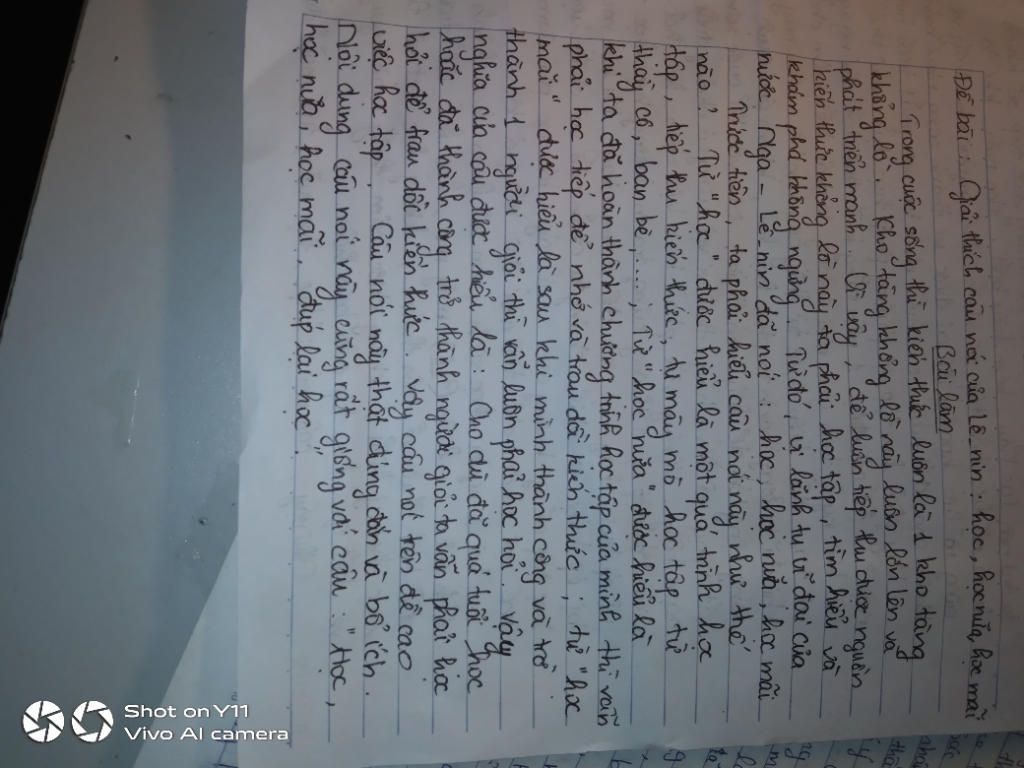 Đề bài: Giải thích câu nói của Lê nin: học, học nữa, học mãi
Bài làm
Trong cuộc sống thì kiến thức luôn là 1 kho tàng
khổng lồ. Kho tàng khổng lồ này luôn lớn lên và
phát triển mạnh. Vì vậy, để luôn tiếp thu được nguồn
kiến thức khổng lồ này ta phải học tập, tìm hiểu và
khám phá không ngừng. Từ đó, vị lãnh tụ vĩ đại của
nước Nga - Lê-nin đã nói: học, học nữa, học mãi
Trước tiên, ta phải hiểu câu nói này như thế
nào? Từ "học" được hiểu là một quá trình học
tập, tiếp thu kiến thức, tự mày mò học tập từ
thầy cô, bạn bè,....; Từ "học nữa" được hiểu là
khi ta đã hoàn thành chương trình học tập của mình thì vẫn
phải học tiếp để nhớ và trau dồi kiến thức; từ "học
mãi" được hiểu là sau khi mình thành công và trở
thành 1 người giỏi thì vẫn luôn phải học hỏi. Vậy
nghĩa của câu được hiểu là: Cho dù đã quá tuổi học
hoặc đã thành công trở thành người giỏi ta vẫn phải học
hỏi để trau dồi kiến thức. Vậy câu nói trên đề cao
việc học tập. Câu nói này thật đúng đắn và bổ ích.
Nội dung câu nói này cũng rất giống với câu: "Học,
học nữa, học mãi, đúp lại học".
Shot on Y11
Vivo AI camera